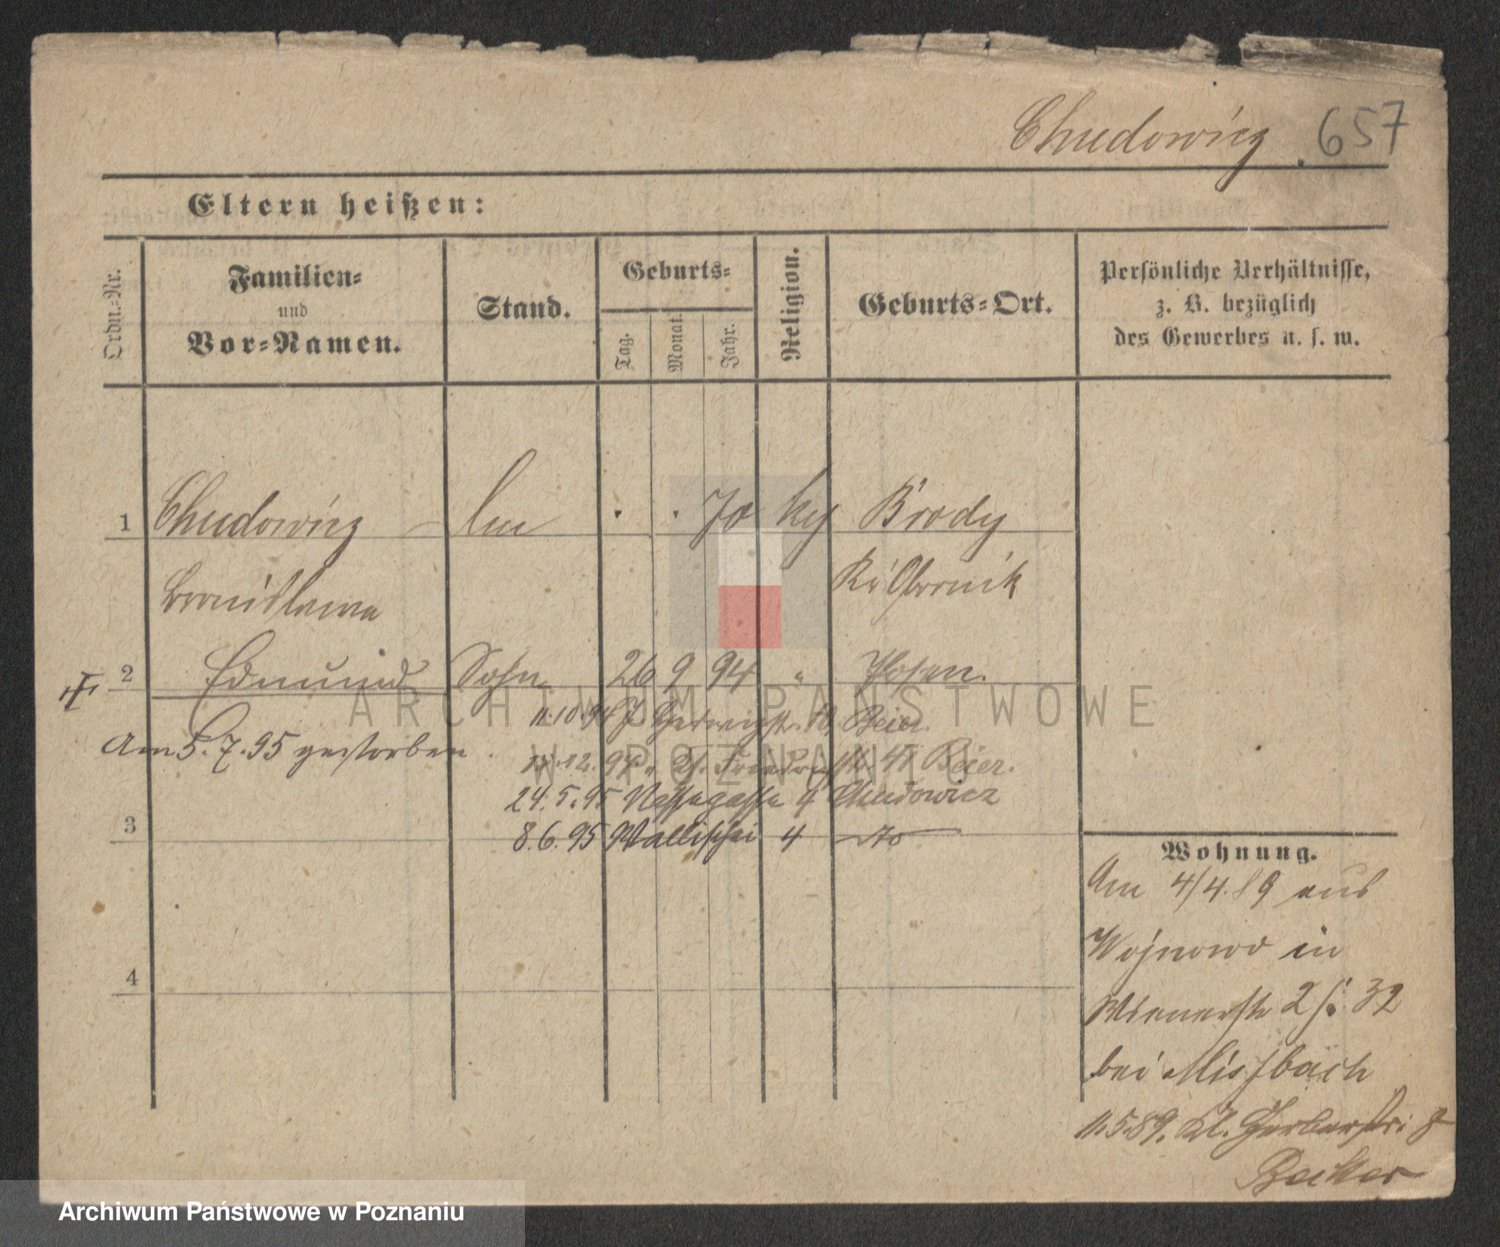 Chudowicz 657
Eltern heißen:
Ordn.-Nr.
Familien-
und
Vor-Namen.
Stand.
Geburts-
Tag.
Monat.
Jahr.
Religion.
Geburts-Ort.
Persönliche Verhältnisse,
z. B. bezüglich
des Gewerbes u. s. w.
1 Chudowicz 70 Brody
Bronislawa Kr Obornik
2 Edmund Sohn 26 9 94 " Posen.
Am 5. 7. 95 gestorben
11.10.94 Beier.
12. 94 47 Beier.
24. 5. 95 4 Chudowicz
3
8. 6. 95 Wallischei 4 do
4
Wohnung.
Am 4/4.89 aus
Wojnowo in
Wienerstr 2 32
bei Missbach
11.5.89. Kl. Gerberstr: 8
Becker
ARCHIWUM PAŃSTWOWE
W POZNANIU
Archiwum Państwowe w Poznaniu